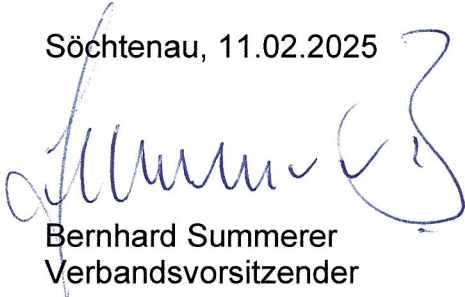 Söchtenau, 11.02.2025
Bernhard Summerer
Verbandsvorsitzender